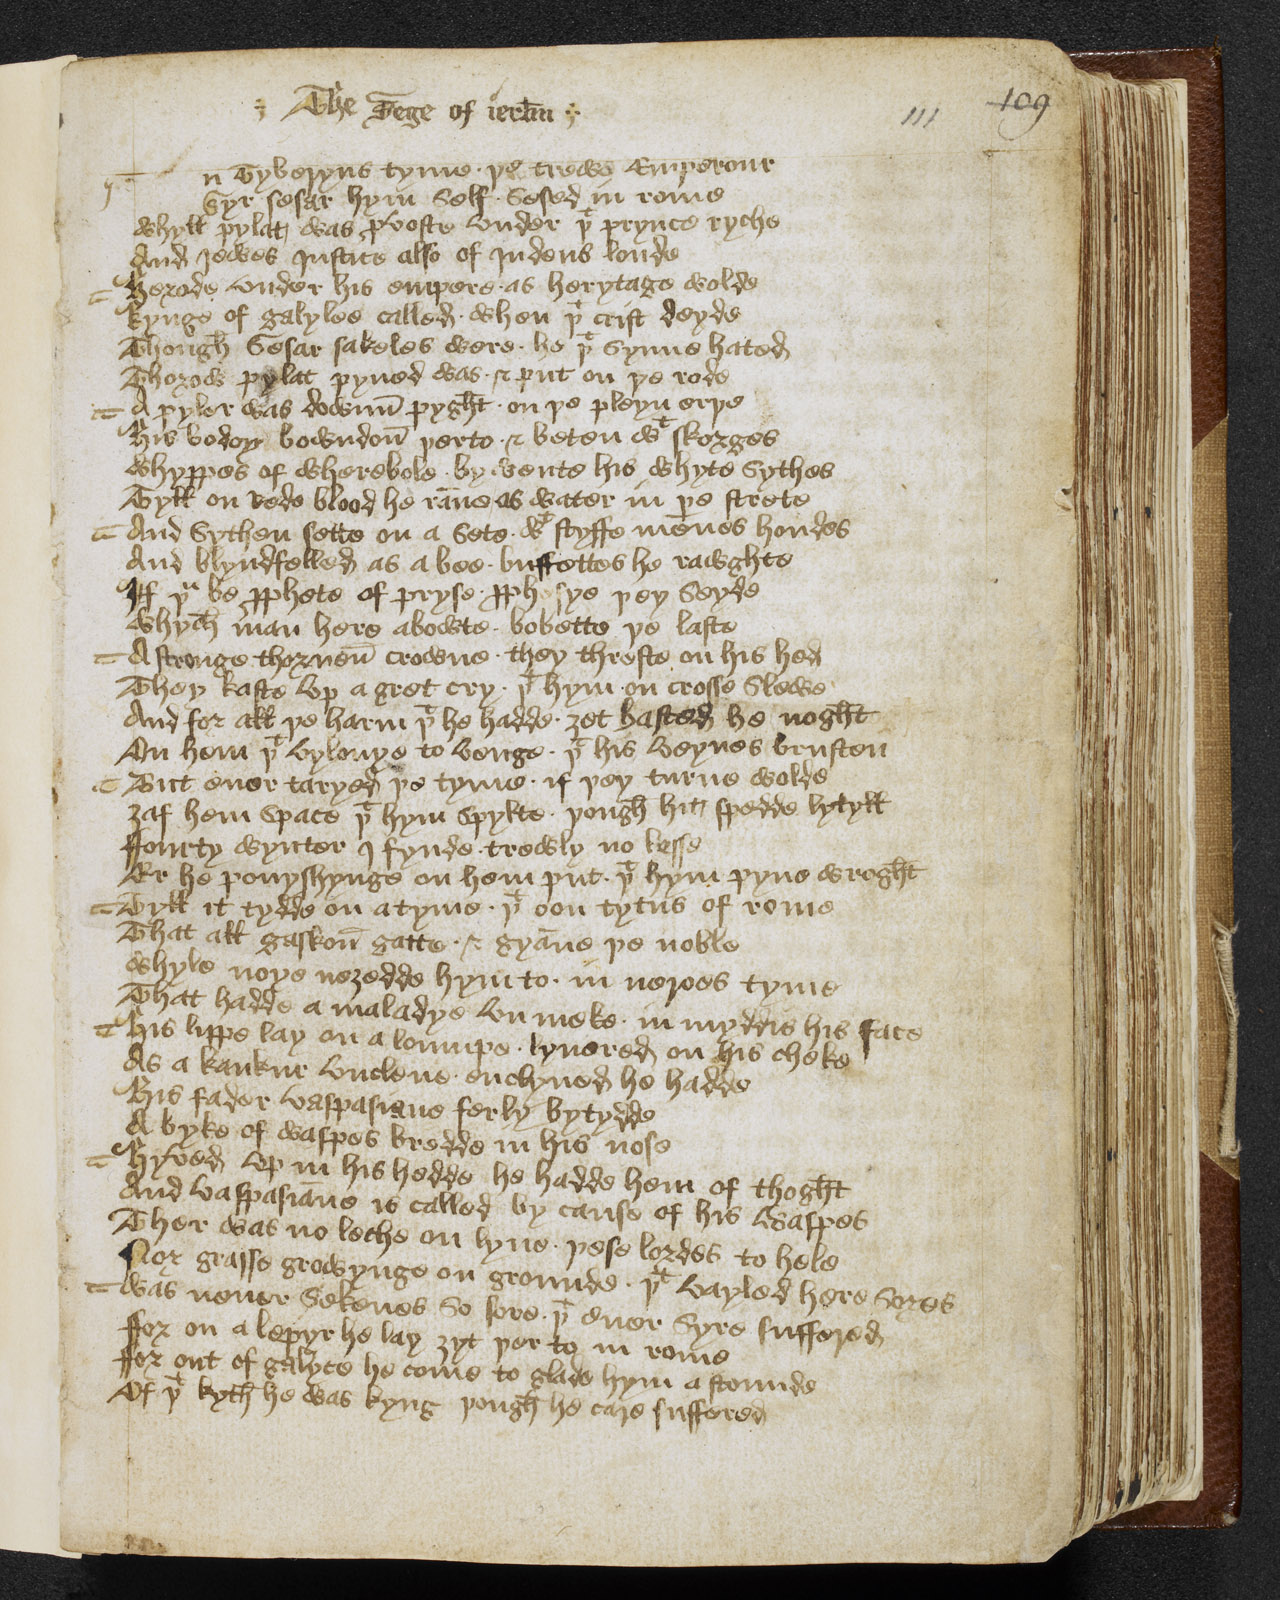 The Sege of ierlm
111 109
n Tyberyus tyme · þe trewe Emperour
Syr sesar hym self · Sesed in rome
whyll pylat was prouoste vnder þt prynce ryche
And Jewes Justice also of Judeus londe
Herode vnder his empere · as herytage wolde
kynge of galylee called · when þt crist deyde
Though Sesar sakeles were · he þt synne hated
Thorow pylat pyned was · & put on þe rode
A pyler was down pyght · on þe pleyn erþe
His body bowndon þerto · & beten wt skorges
whyppes of wherebole · by wente his whyte sythes
Tyll on rede blood he rāne as water in þe strete
And sythen sette on a sete · wt styffe mēnes hondes
And blyndfelled as a bee · buffettes he rawghte
Iff þu be pphete of pryse · pphesye þey seyde
whych man here abowte · bobette þe laste
A stronge thornen crowne · they threste on his hed
They kaste vp a gret cry · þt hym on crosse slewe
And for all þe harm þt he hadde · ȝet hasted he noght
On hem þt vylonye to venge · þt his veynes brusten
But euer taryed þe tyme · if þey turne wolde
ȝaf hem space þt hym spylte · þough hit spedde lytyll
ffourty wynter I fynde · trewly no lesse
Er he ponyshynge on hem put · þt hym pyne wroght
Tyll it tydde on a tyme · þt oon tytus of rome
That all gaskon gatte · & gyāne þe noble
whyle noye neȝedde hym to · in neroes tyme
That hadde a maladye vn meke · in myddis his face
His lippe lay on a loumpe · lyuered on his cheke
As a kankur vnclene · enclyned he hadde
His fader vaspasiane ferly bytydde
A byke of waspes bredde in his nose
Hyved vp in his hedde he hadde hem of thoght
And vaspasiāne is called by cause of his waspes
Ther was no leche on lyue · þese lordes to hele
Nor grasse growynge on grounde · þt vayled here sores
was neuer sekenes so sore · þt euer syre suffered
ffor on a lepyr he lay ȝyt þer to in rome
ffor out of galyce he come to glade hym a stounde
Of þt kyth he was kyng þough he care suffered